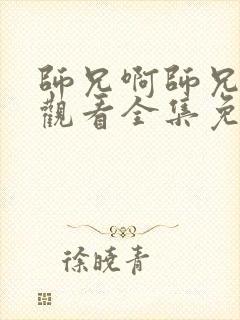 師兄啊師兄
觀看全集免
徐曉青